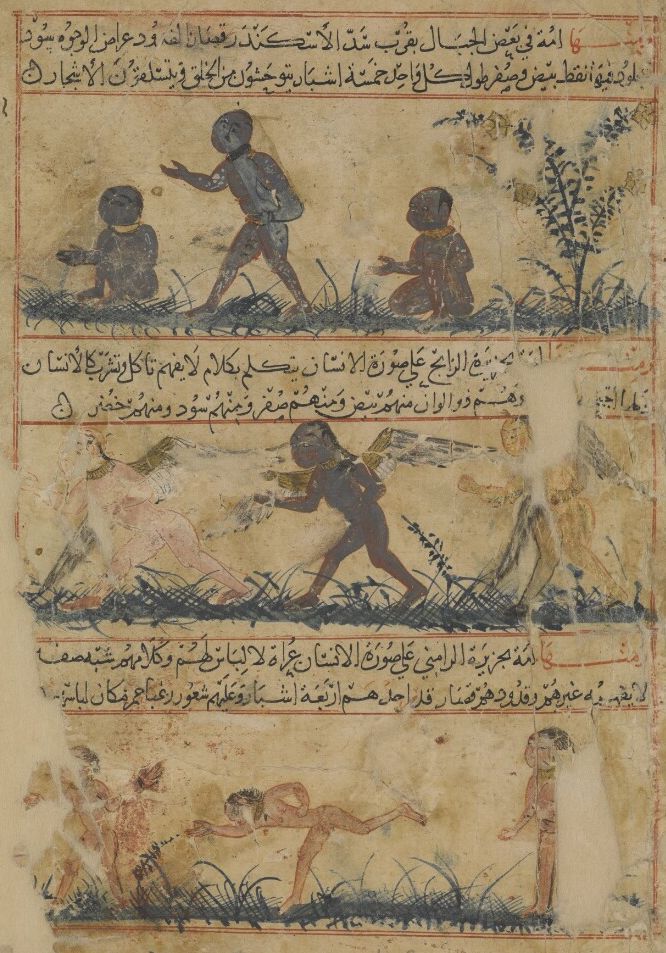 ومنها امة في بعض الجبال بقرب سد الاسكندر قصار القدود عراض الوجوه سود
الجلود فيها نقط بيض وصفر طول كل واحد خمسة اشبار يتوحشون من الخلق ويتسلقون الاشجار
ومنها امة بجزيرة الرانج على صورة الانسان يتكلم بكلام لا يفهم تاكل وتشرب كالانسان
وهم ذو الوان منهم بيض ومنهم صفر ومنهم سود ومنهم خضر
ومنها امة بجزيرة الرامني على صورة الانسان عراة لا لباس لهم وكلامهم شبه صفـ
لا يفهمه غيرهم وقدودهم قصار قد احدهم اربعة اشبار وعليهم شعور زغبا حمر مكان لباس